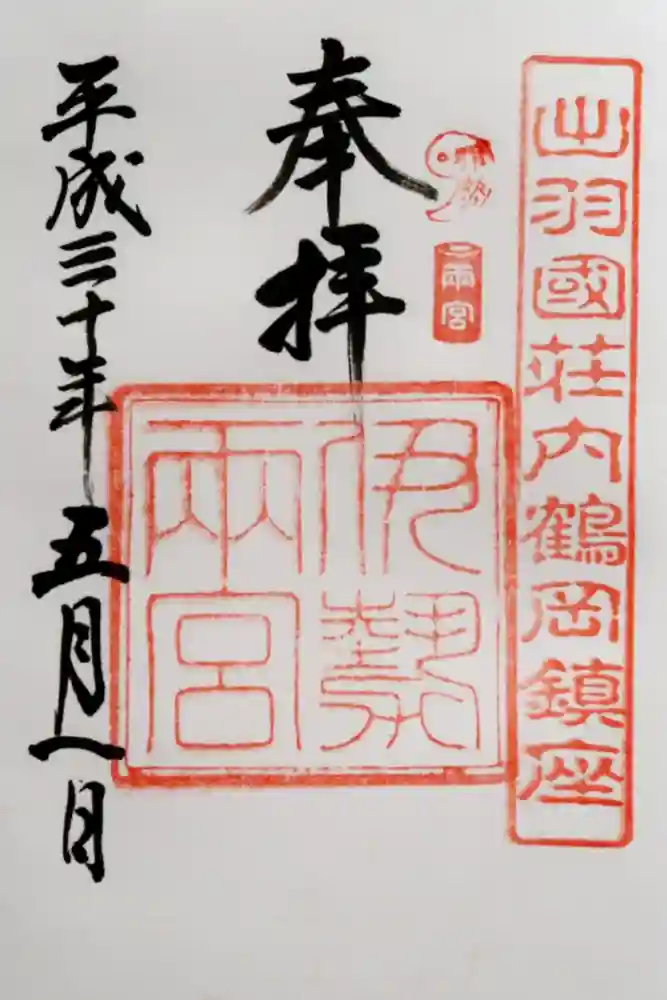 出羽國荘内鶴岡鎮座
伊勢
両宮
奉拝
伊勢
兩宮
平成三十年五月一日